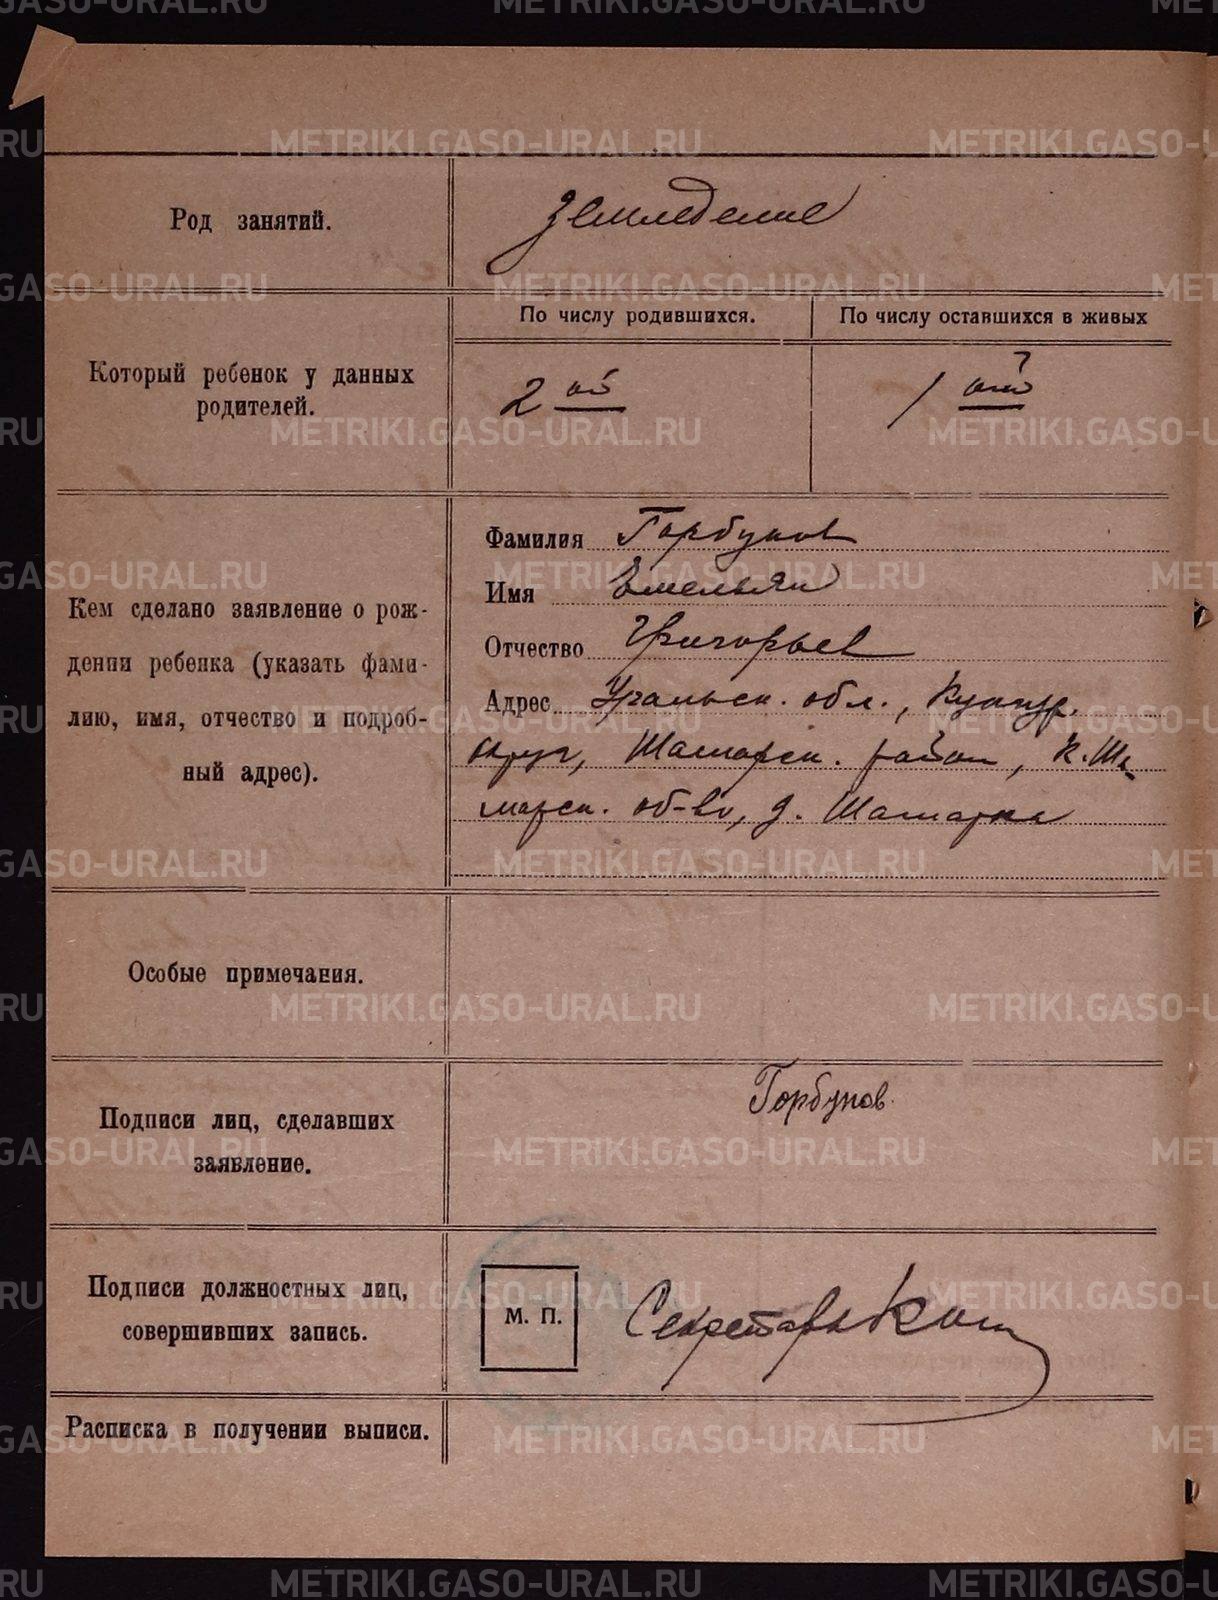 Род занятий.
Земледелие
Который ребенок у данных
родителей.
По числу родившихся.
По числу оставшихся в живых
2 ой
1 ый
Кем сделано заявление о рож-
дении ребенка (указать фами-
лию, имя, отчество и подроб-
ный адрес).
Фамилия Горбунов
Имя Емельян
Отчество Григорьев
Адрес Уральск. обл., Кунгур.
округ, Шамарск. район, К.Ша-
марск. об-во, д. Шамарка
Особые примечания.
Подписи лиц, сделавших
заявление.
Горбунов
Подписи должностных лиц,
совершивших запись.
М. П.
Секретарь
Расписка в получении выписи.
METRIKI.GASO-URAL.RU